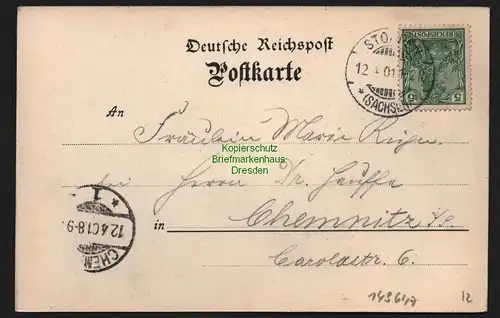 Deutsche Reichspost
Postkarte
STO
12 4 01
* (SACHSEN)
REICHSPOST
5 5
An
Fräulein Marie
Kopierschutz
Briefmarkenhaus
Dresden
bei Herrn
in Chemnitz i/S.
Carolastr. 6.
CHEM
12.4.01.8-9
* 1
149647
12